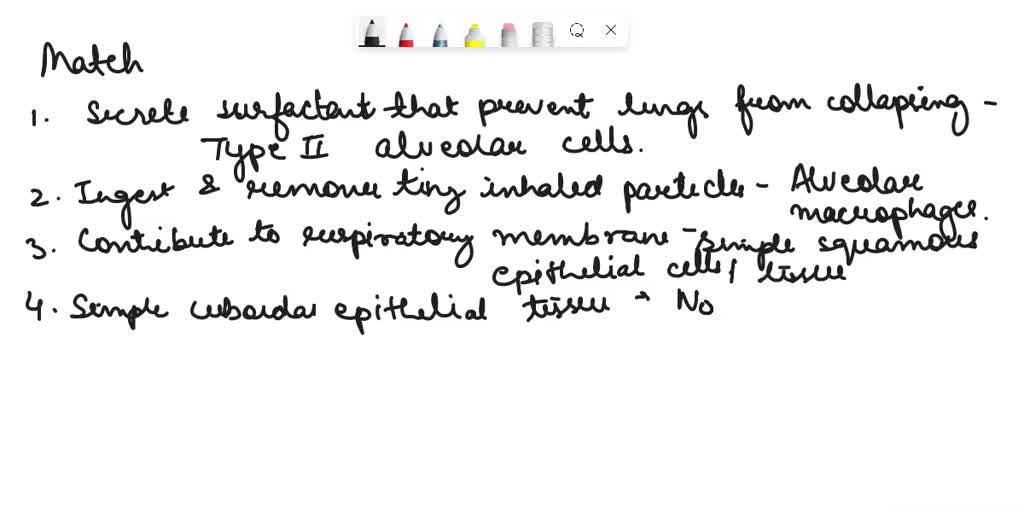 Match
1. Secrete surfactant that prevent lungs from collapsing -
Type II alveolar cells.
2. Ingest & remove tiny inhaled particles - Alveolar
macrophages.
3. Contribute to respiratory membrane - simple squamous
epithelial cells / tissue
4. Simple cuboidal epithelial tissue - No